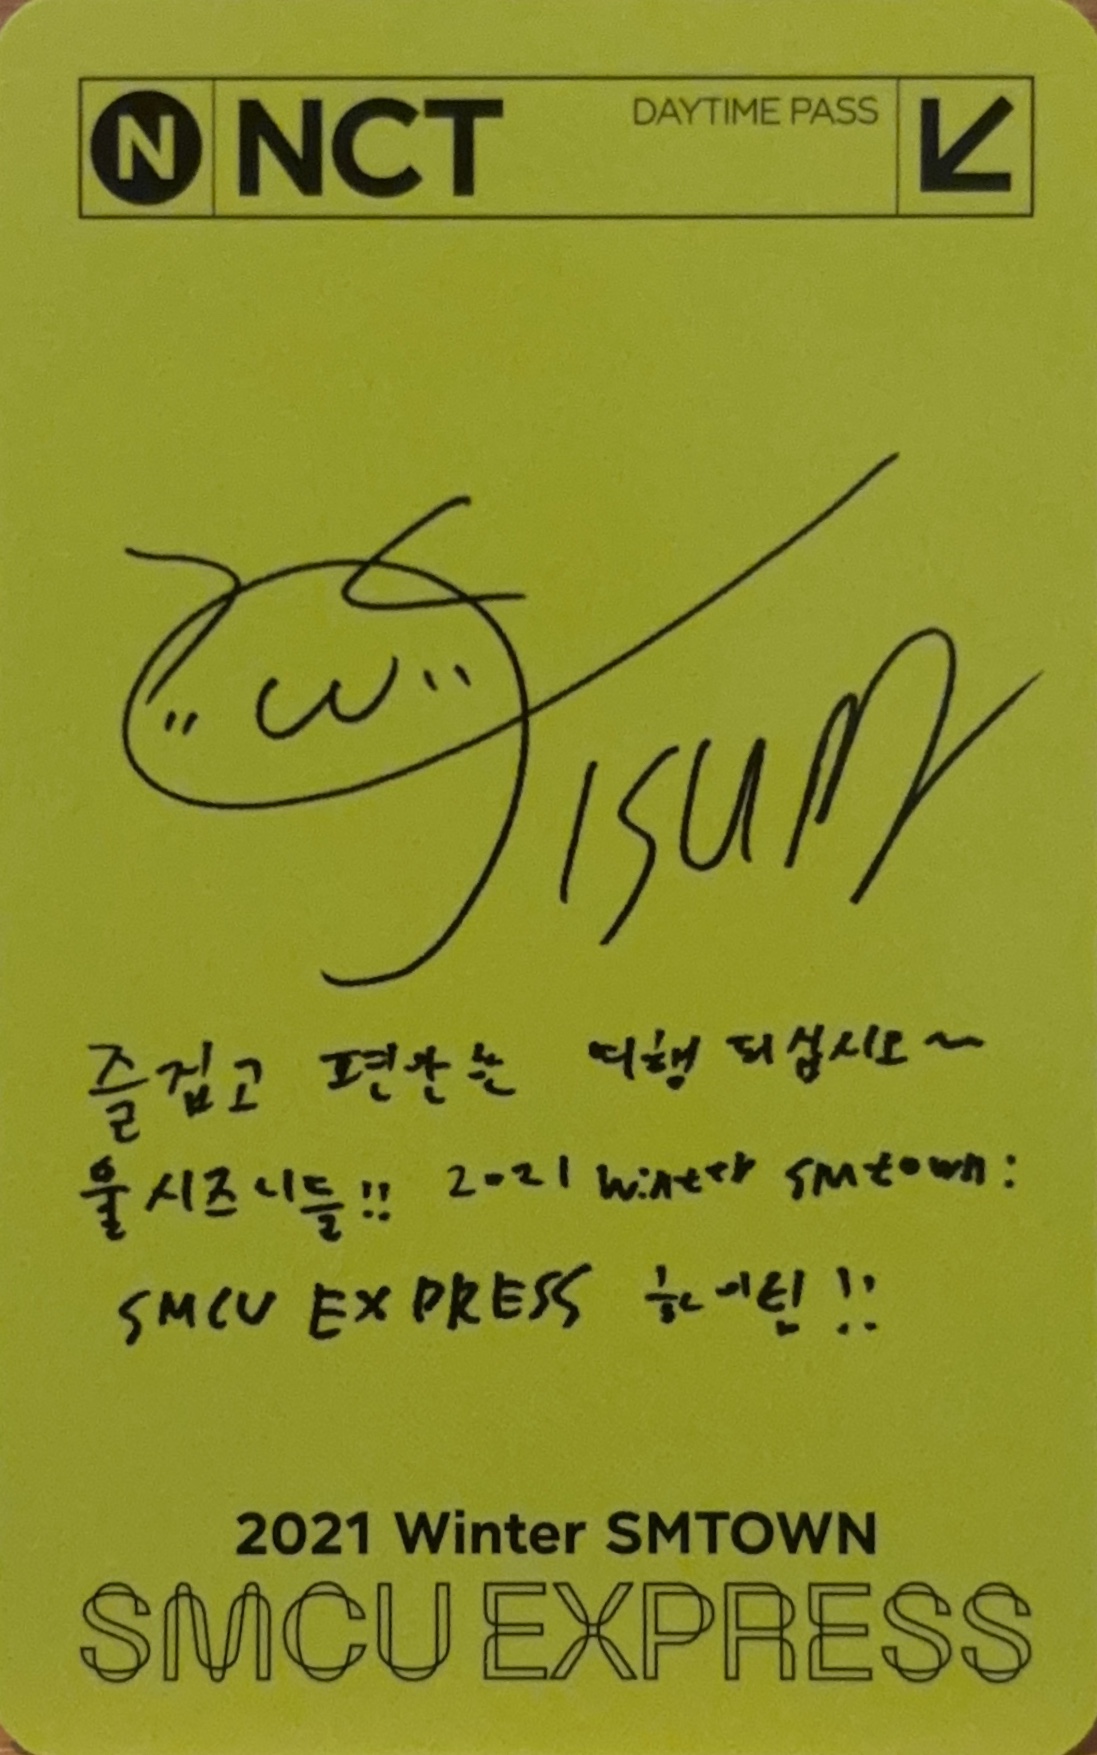 N NCT DAYTIME PASS
JISUNG
즐겁고 편안한 여행 되십시오~
울 시즈니들!! 2021 winter smtown:
SMCU EXPRESS 화이팅!!
2021 Winter SMTOWN
SMCU EXPRESS